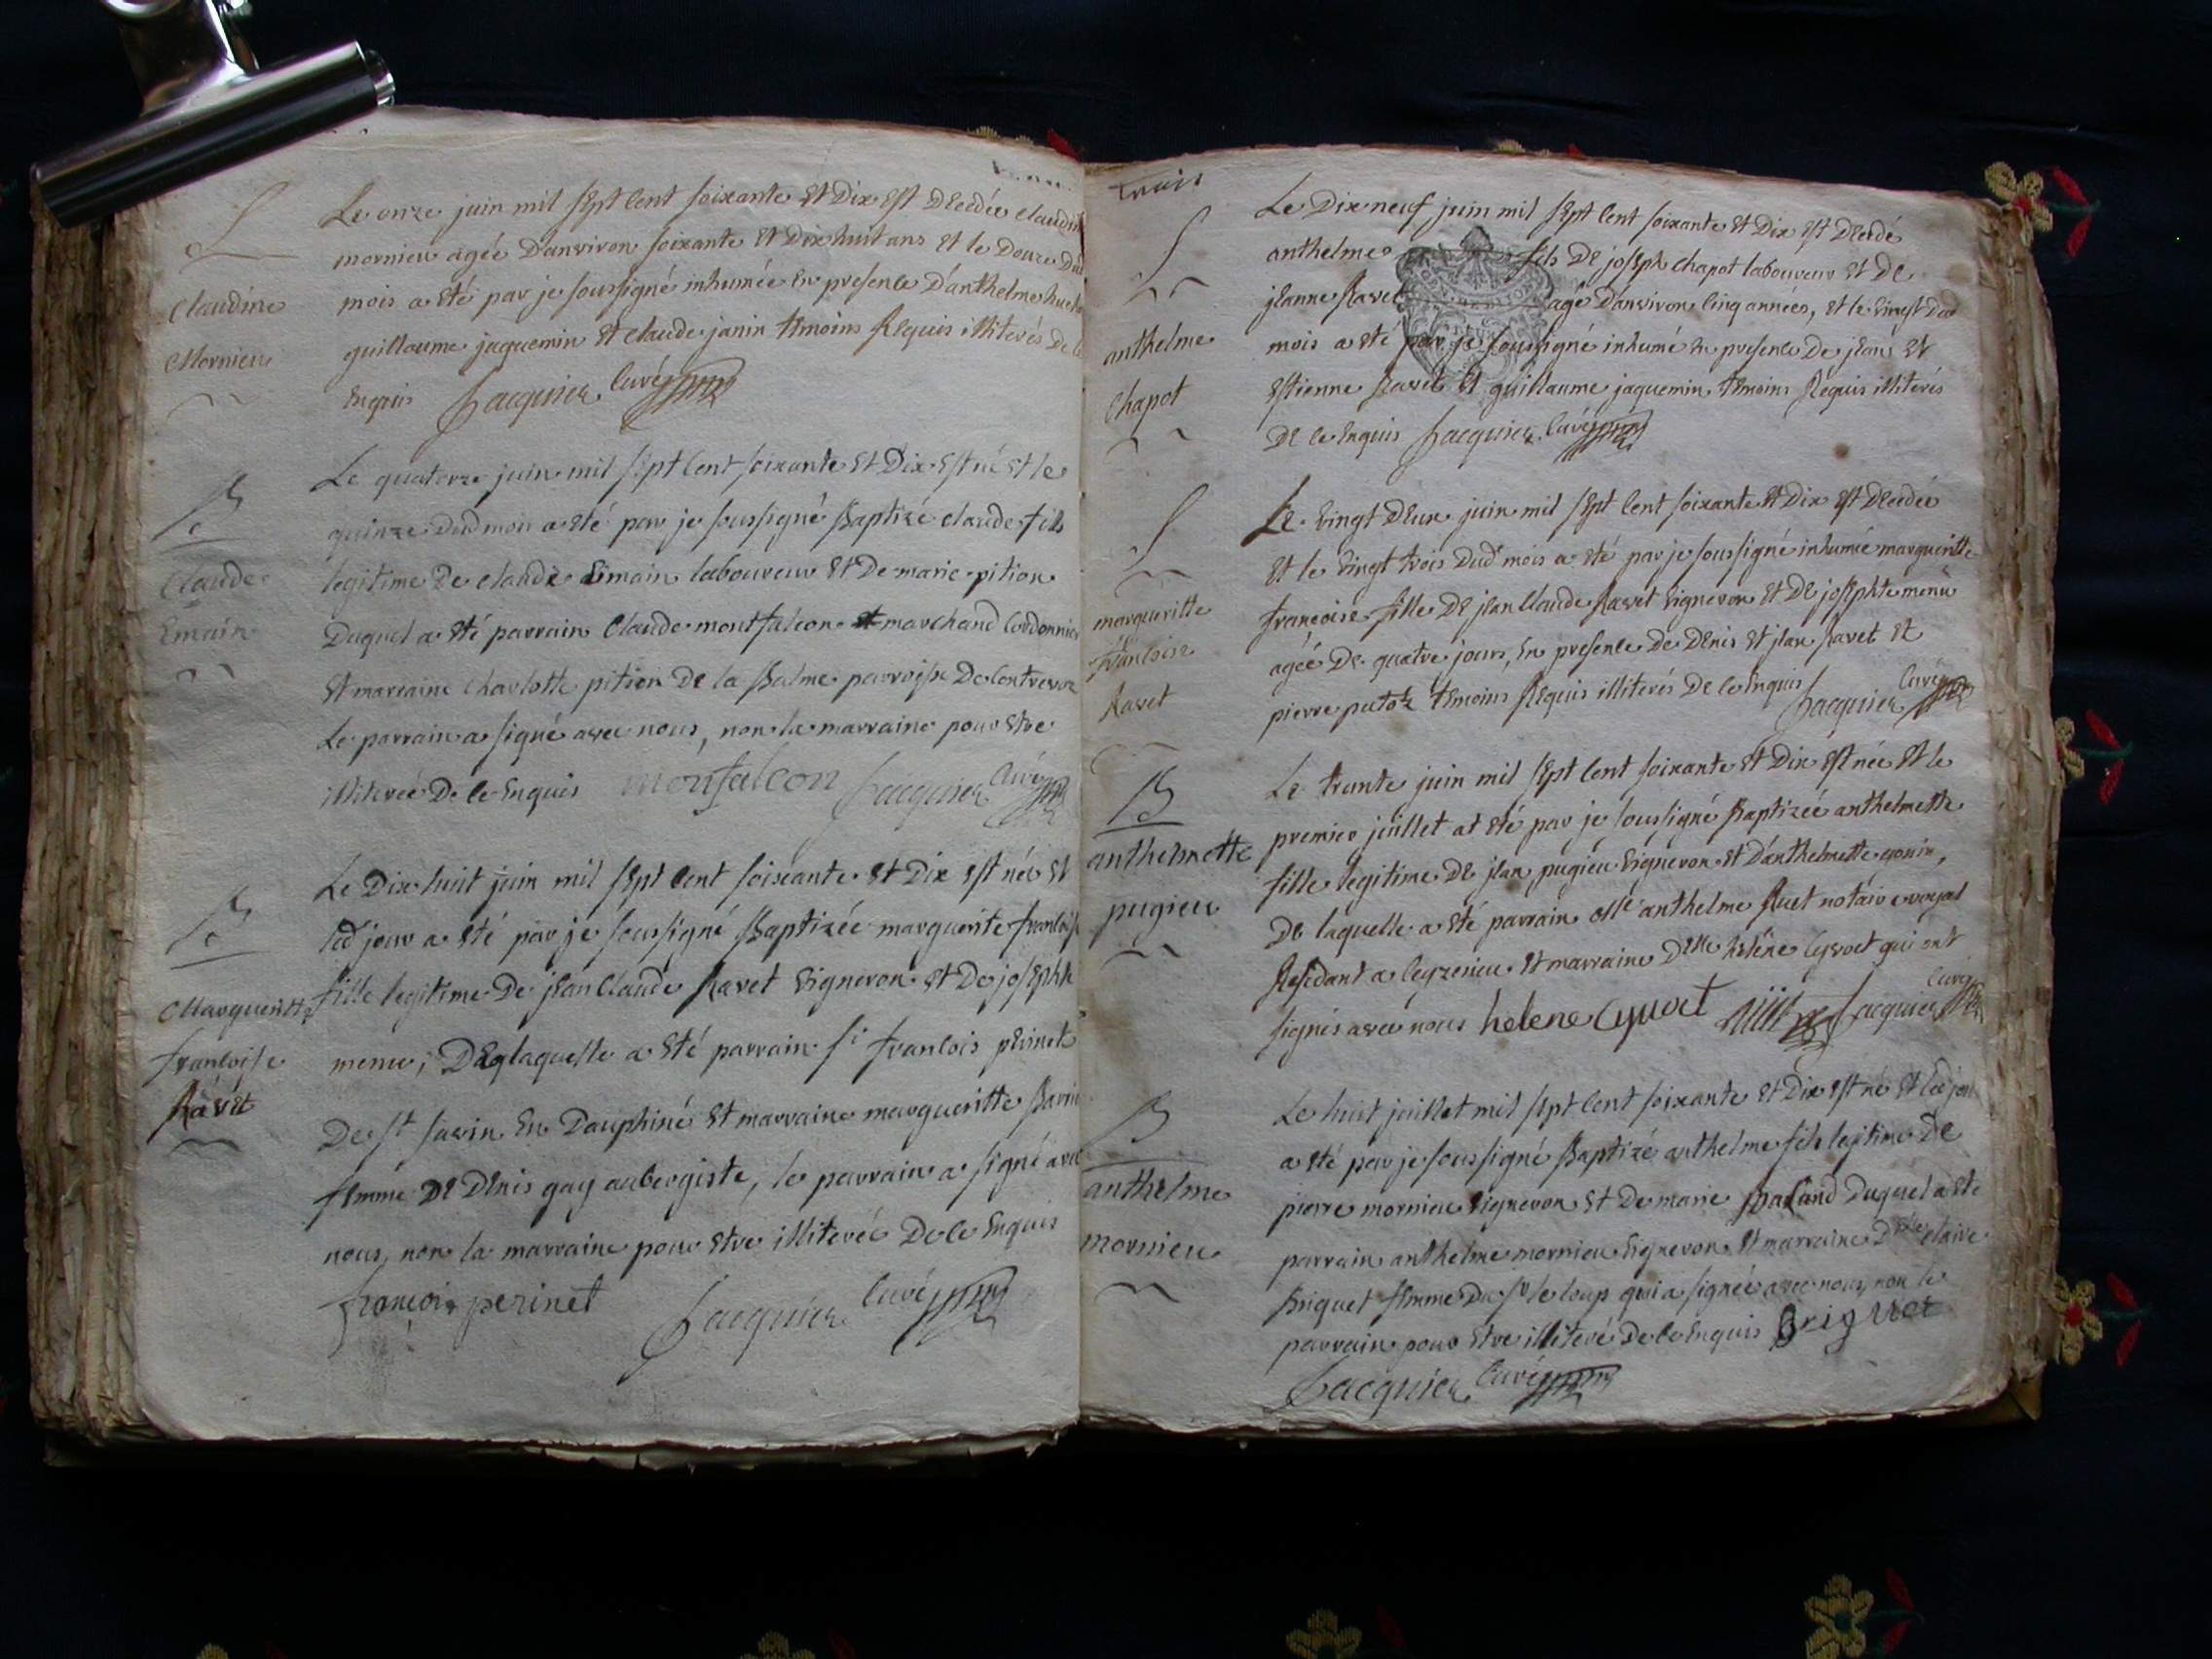 S
Claudine
Mornieu
Le onze juin mil sept cent soixante et Dix est Decedée claudine
mornieu agée D'anviron soixante et Dix huit ans et le Douze Dud
mois a eté par je soussigné inhumée en presence D'anthelme
guillaume jaquemin et claude janin temoins Requis illiterés De ce
enquis Jacquier Curé
B
Claude
Emain
Le quatorze juin mil sept cent soixante et Dix est né et le
quinze dud mois a eté par je soussigné Baptizé claude fils
legitime De claude Emain laboureur et De marie pition
Duquel a eté parrain Claude montfalcon marchand Cordonnier
et marraine charlotte pition De la Balme parroisse De Contrevoz
Le parrain a signé avec nous, non la marraine pour etre
illiterée De ce enquis monfalcon Jacquier Curé
B
Margueritte
francoise
Ravet
Le Dix huit juin mil sept cent soixante et Dix est née et
led jour a eté par je soussigné Baptizée marguerite francoise
fille legitime De jean Claude Ravet vigneron et De josephte
menu, De laquelle a eté parrain sr francois perinet
De st savin en Dauphiné et marraine margueritte
femme De Denis gay aubergiste, le parrain a signé avec
nous, non la marraine pour etre illiterée De ce enquis
françois perinet Jacquier Curé
trois
S
anthelme
Chapot
Le Dix neuf juin mil sept cent soixante et Dix est Decedé
anthelme fils De joseph chapot laboureur et De
jeanne Ravet agé D'anviron cinq années, et le vingt dud
mois a eté par je soussigné inhumé en presence De jean et
estienne Ravet et guillaume jaquemin temoins Requis illiterés
De ce enquis Jacquier Curé
S
margueritte
francoise
Ravet
Le vingt Deux juin mil sept cent soixante et Dix est Decedée
et le vingt trois dud mois a eté par je soussigné inhumée margueritte
francoise fille De jean Claude Ravet vigneron et De josephte menu
agée De quatre jours, en presence De Denis et jean Ravet et
pierre temoins Requis illiterés De ce enquis Jacquier Curé
B
anthelmette
pugieu
Le trente juin mil sept cent soixante et Dix est née et le
premier juillet at eté par je soussigné Baptizée anthelmette
fille legitime De jean pugieu vigneron et D'anthelmette gonin,
De laquelle a eté parrain Me anthelme Ruet notaire royal
Residant a Ceyzerieu et marraine Delle helène Cyvoct qui ont
signés avec nous helene Cyvoct Jacquier Curé
B
anthelme
mornieu
Le huit juillet mil sept cent soixante et Dix est né et led jour
a eté par je soussigné Baptizé anthelme fils legitime De
pierre mornieu vigneron et De marie Baland Duquel a eté
parrain anthelme mornieu vigneron et marraine Delle claire
Briquet femme Du sr le loup qui a signée avec nous, non le
parrain pour etre illiteré De ce enquis Briquet
Jacquier Curé